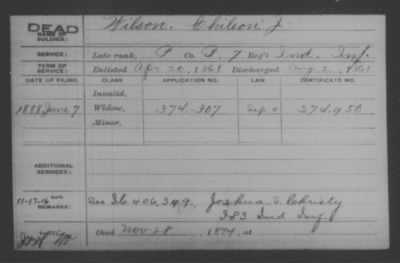 DEAD
NAME OF SOLDIER:
Wilson, Chileon J
SERVICE:
Late rank, P Co. B. 7 Reg't Ind. Inf.
TERM OF SERVICE:
Enlisted Apr 20, 1861 Discharged Aug 2, 1861
DATE OF FILING. CLASS APPLICATION NO. LAW. CERTIFICATE NO.
Invalid,
1888 June 7 Widow, 374.307 274.950
Minor,
ADDITIONAL SERVICES:
11-17-16
REMARKS:
See Ib 406,349 Joshua S. Christy
I 83 Ind Inf.
Died Nov 28, 1874, at